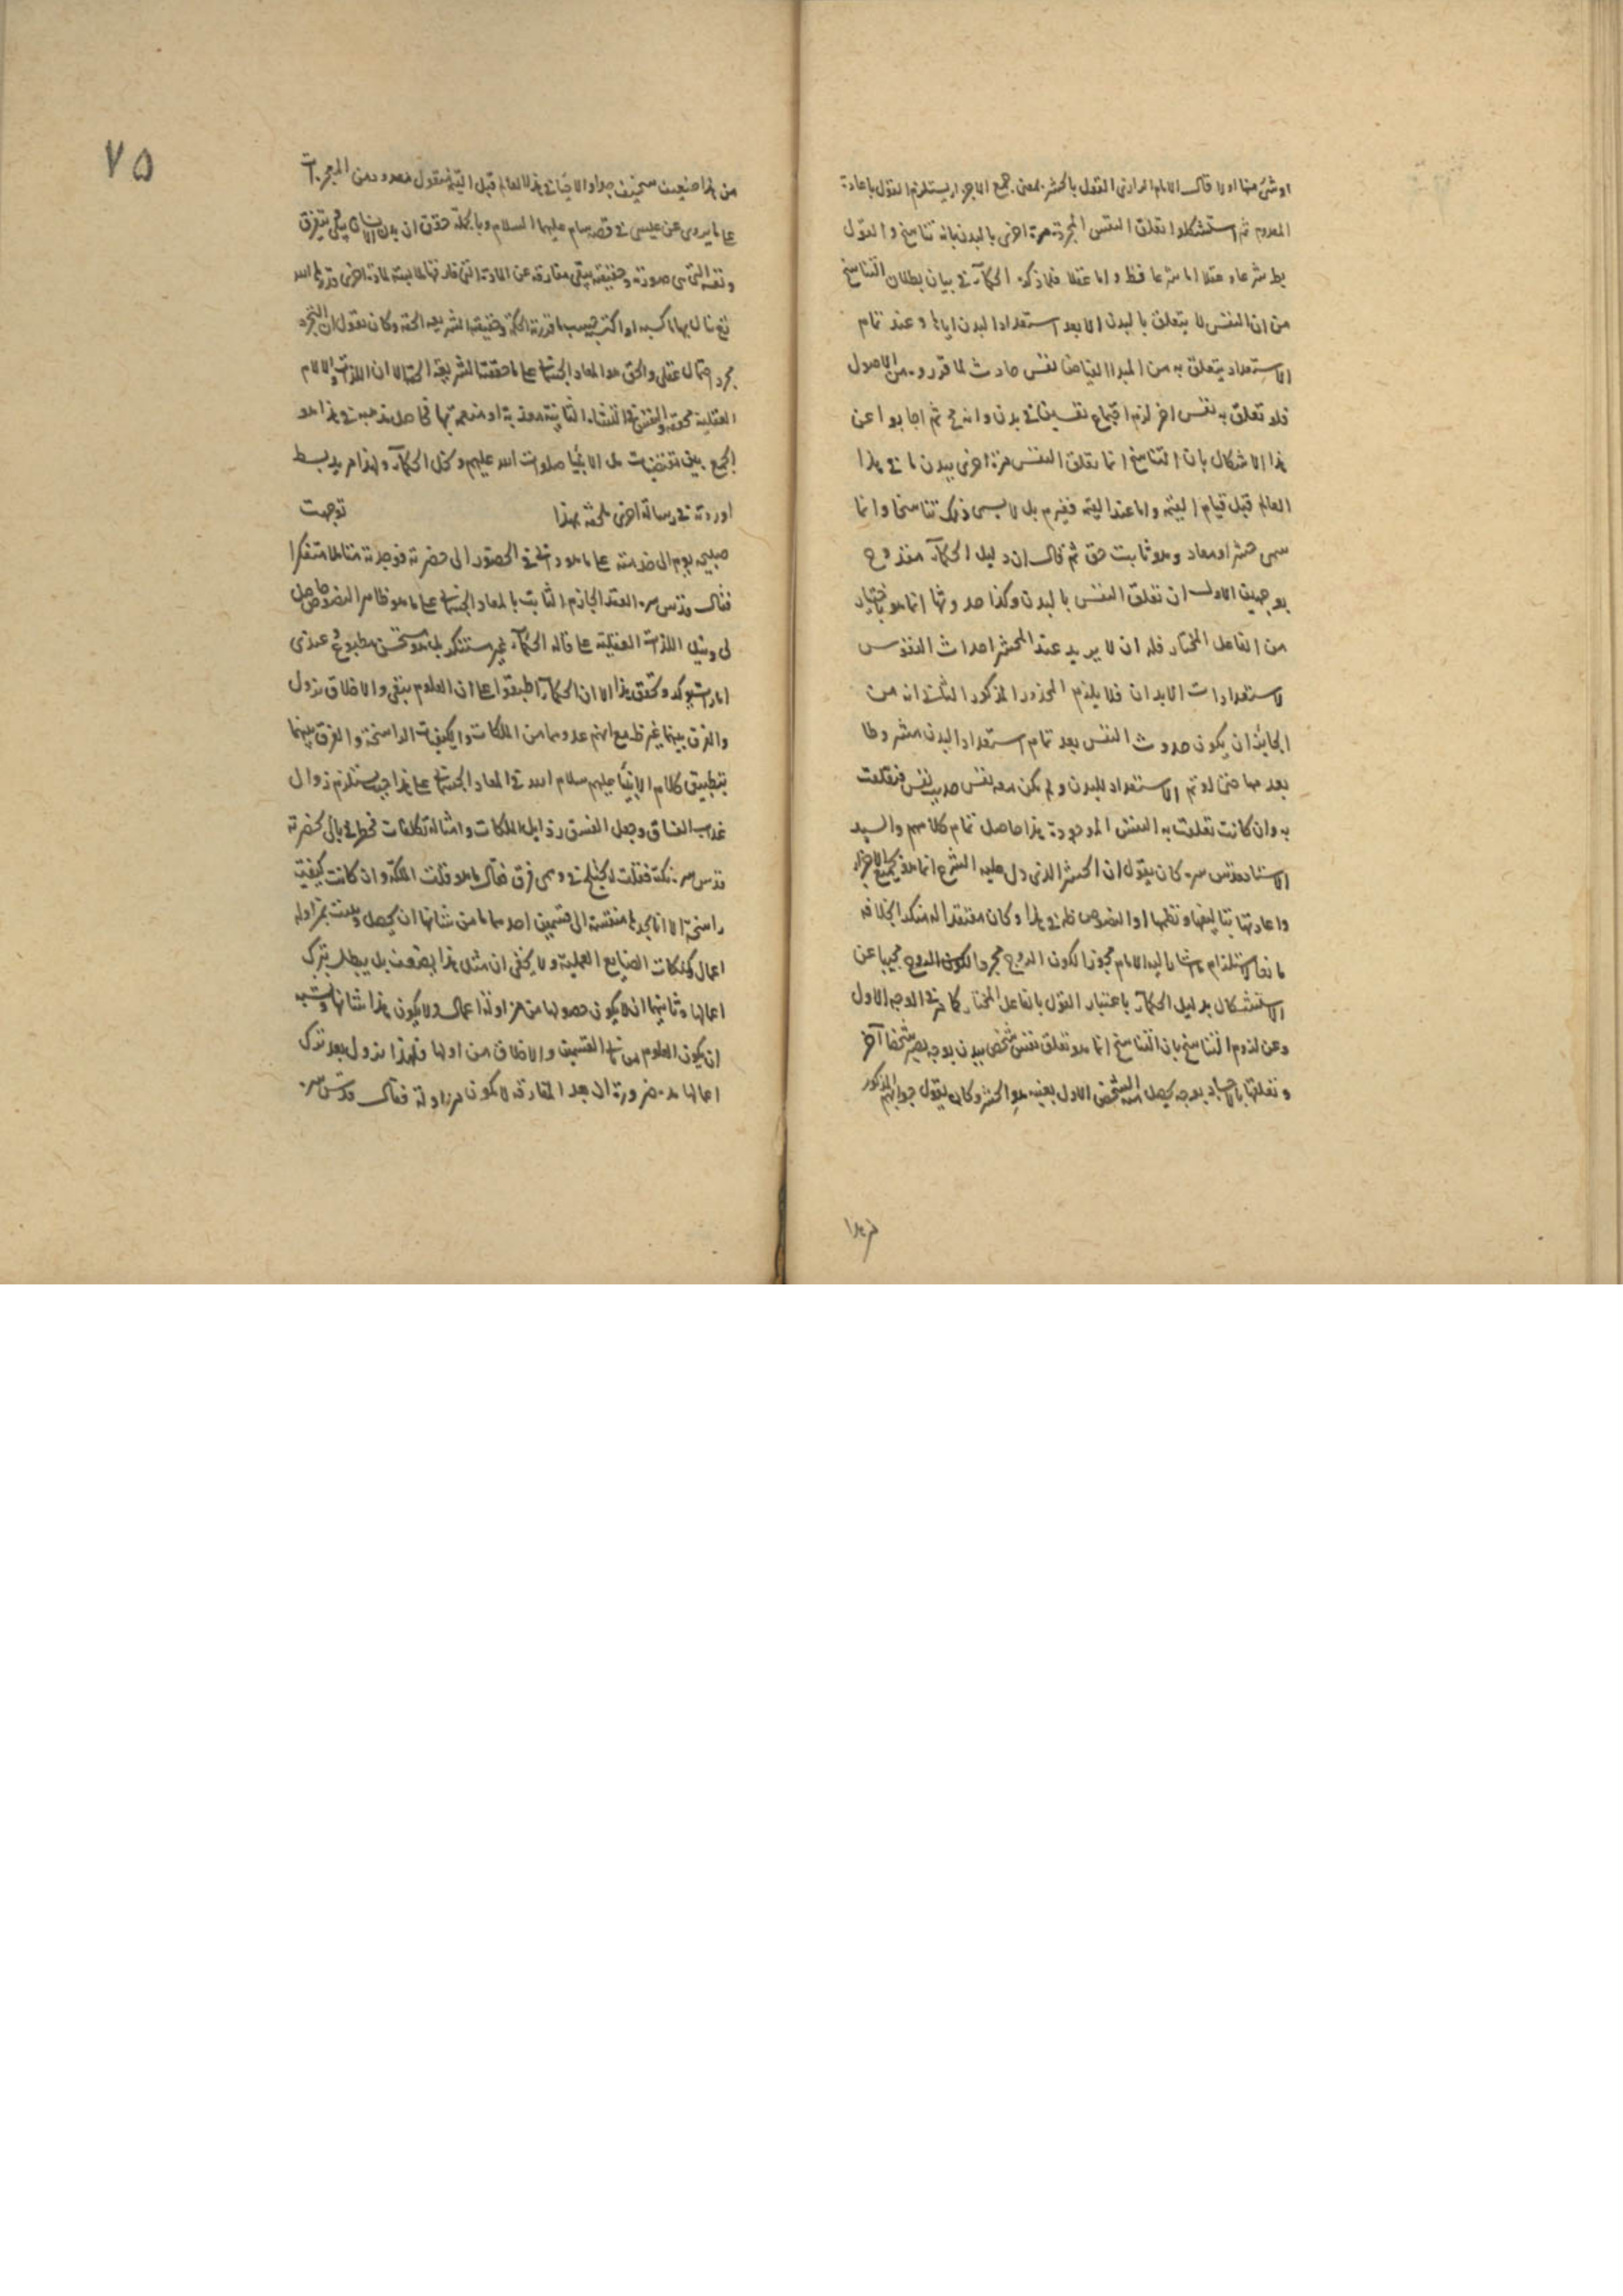 او شئ منها اولا قال الامام الرازى القول بالحشر بمعنى جمع الاجزاء يستلزم القول باعادة
المعدوم ثم استشكلوا تعلق النفس المجردة مرة اخرى بالبدن بانه تناسخ والقول
بط شرعا وعقلا اما شرعا فظ واما عقلا فلما ذكره الحكماء فى بيان بطلان التناسخ
من ان النفس لا يتعلق بالبدن الا بعد استعداد البدن اياها وعند تمام
الاستعداد يتعلق به من المبدا الفياض نفس حادث لما قرروه من الاصول
فلو تعلق به نفس اخر لزم اجتماع نفسين فى بدن وانه مح ثم اجابوا عن
هذا الاشكال بان التناسخ انما تعلق النفس مرة اخرى ببدن ما فى هذا
العالم قبل قيام القيمة واما عند القيمة فغيرم بل لا يسمى ذلك تناسخا وانما
سمى حشرا ومعاد وهو ثابت حق ثم قال ان دليل الحكماء مقدوح
بوجهين الاول ان تعلق النفس بالبدن وكذا حدوثها انما هو باختيار
من الفاعل المختار فله ان لا يريد عند المحشر احداث النفوس
لاستعدادات الابدان فلا يلزم المحذور المذكور الثانى انه من
الجايز ان يكون حدوث النفس بعد تمام استعداد البدن مشروطا
بعدمها حتى لو تم الاستعداد للبدن ولم يكن معه نفس حدث نفس فتعلقت
به وان كانت تعلقت به النفس الموجودة هذا حاصل تمام كلامهم والسيد
الاستاد قدس سره كان يقول ان الحشر الذى دل عليه الشرع انما هو بجميع الاجزاء
واعادتها بتاليفها ونظمها او النصوص ظ فى هذا وكان معتقدا له منكرا لخلافه
مانعا لاستلزام ما اشار اليه الامام مجوزا لكون الروح مجردا لكون الروح مجيبا عن
الاستشكال بدليل الحكماء باعتبار القول بالفاعل المختار كما مر فى الوجه الاول
وعن لزوم التناسخ بان التناسخ انما هو تعلق نفس شخص ببدن بوجه يصير شخصا آخر
وتعلقها بالاجساد بوجه يحصل منه الشخص الاول بعينه هو الحشر وكان يقول جوابهم المذكور
من هذا
٧٥
من هذا ضعيف سخيف جدا والاحياء فى هذا العالم قبل القيمة منقول معدود من المعجزات
على ما يروى عن عيسى فى قصة سام عليهما السلام وبالجملة حقق ان بدن الانسان يتفرق
ونفسه التى هى صورته وحقيقته يبقى مفارقة عن المادة التى فارقتها ملابسة لمادة اخرى قدرها الله
مجرد احتمال عقلى والحق هو المعاد الجسمانى على ما حققت الشريعة الحقة الا ان اللذات والالام
الجمع بين مقتضيات ملل الانبياء صلوات الله عليهم وكل الحكماء ولهذا مزيد بسط
اوردته فى رسالة اخرى ملحقة بهذا توجهت
صبيحة يوم الى خدمته على ما هو دابى فى الحضور الى حضرته فوجدته متاملا متفكرا
فقال قدس سره العقد الجازم الثابت بالمعاد الجسمانى على ما هو ظاهر النصوص حاصل
لى ونيل اللذات العقلية على ما قاله الحكماء غير مستنكر بل هو مستحسن مطبوع وعندى
امارات يؤكده وتحقق هذا الا ان الحكماء اطبقوا على ان العلوم يبقى والاخلاق يزول
والفرق بينهما غير ظ مع انهم عدوهما من الملكات والكيفيات الراسخة والفرق بينهما
بتطبيق كلام الانبياء عليهم سلام الله فى المعاد الجسمانى على هذا حيث يستلزم زوال
عذاب الفساق وجعل الفسق رذايل الملكات وامثاله تكلفات فخطر ببالى بحضرته
قدس سره نكتة فقلت يختلج فى وهمى فرق فقال ما هو قلت الملكة وان كانت كيفية
راسخة الا انا نجدها منقسمة الى قسمين احدهما ما من شانها ان يحصل ويثبت بمزاولة
اعمال كملكات الصنايع العملية ولا يخفى ان مثل هذا يضعف بل يبطل بترك
اعمالها وثانيهما ان لا يكون حصولها من مزاولة اعمال ولا يكون هذا شانها ويشبه
ان يكون العلوم من ثانى القسمين والاخلاق من اولها ولهذا يزول بعد ترك
اعمالها مدة ضرورة ان بعد المفارقة لا يكون مزاولة فقال قدس سره